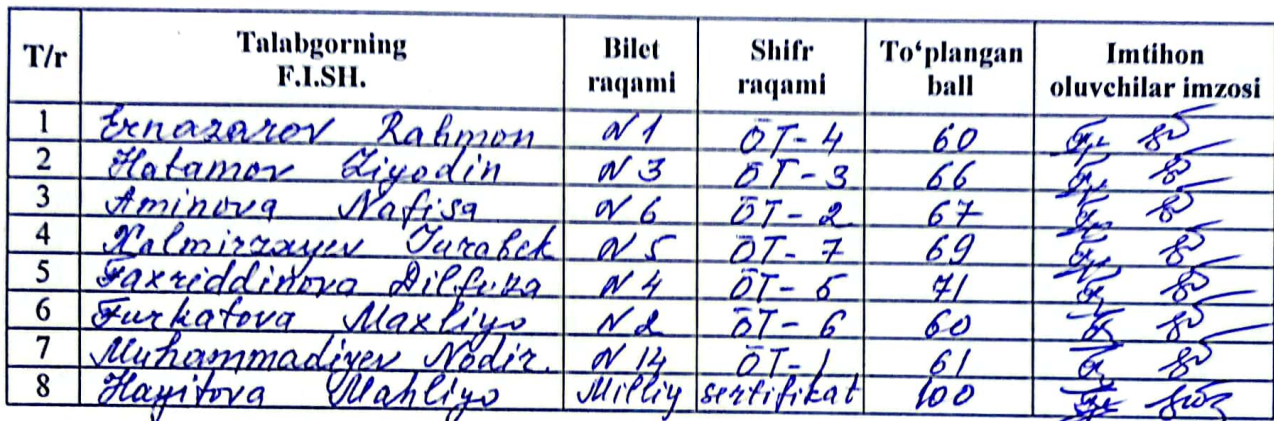 T/r Talabgorning F.I.SH. Bilet raqami Shifr raqami To‘plangan ball Imtihon oluvchilar imzosi
1 Ernazarov Rahmon N 1 ŌT-4 60
2 Hatamov Ziyodin N 3 ŌT-3 66
3 Aminova Nafisa N 6 ŌT-2 67
4 Xolmirzayev Jurabek N 5 ŌT-7 69
5 Faxriddinova Dilfuza N 4 ŌT-5 71
6 Furkatova Maxliyo N 2 ŌT-6 60
7 Muhammadiyev Nodir. N 14 ŌT-1 61
8 Hayitova Mahliyo Milliy sertifikat 100